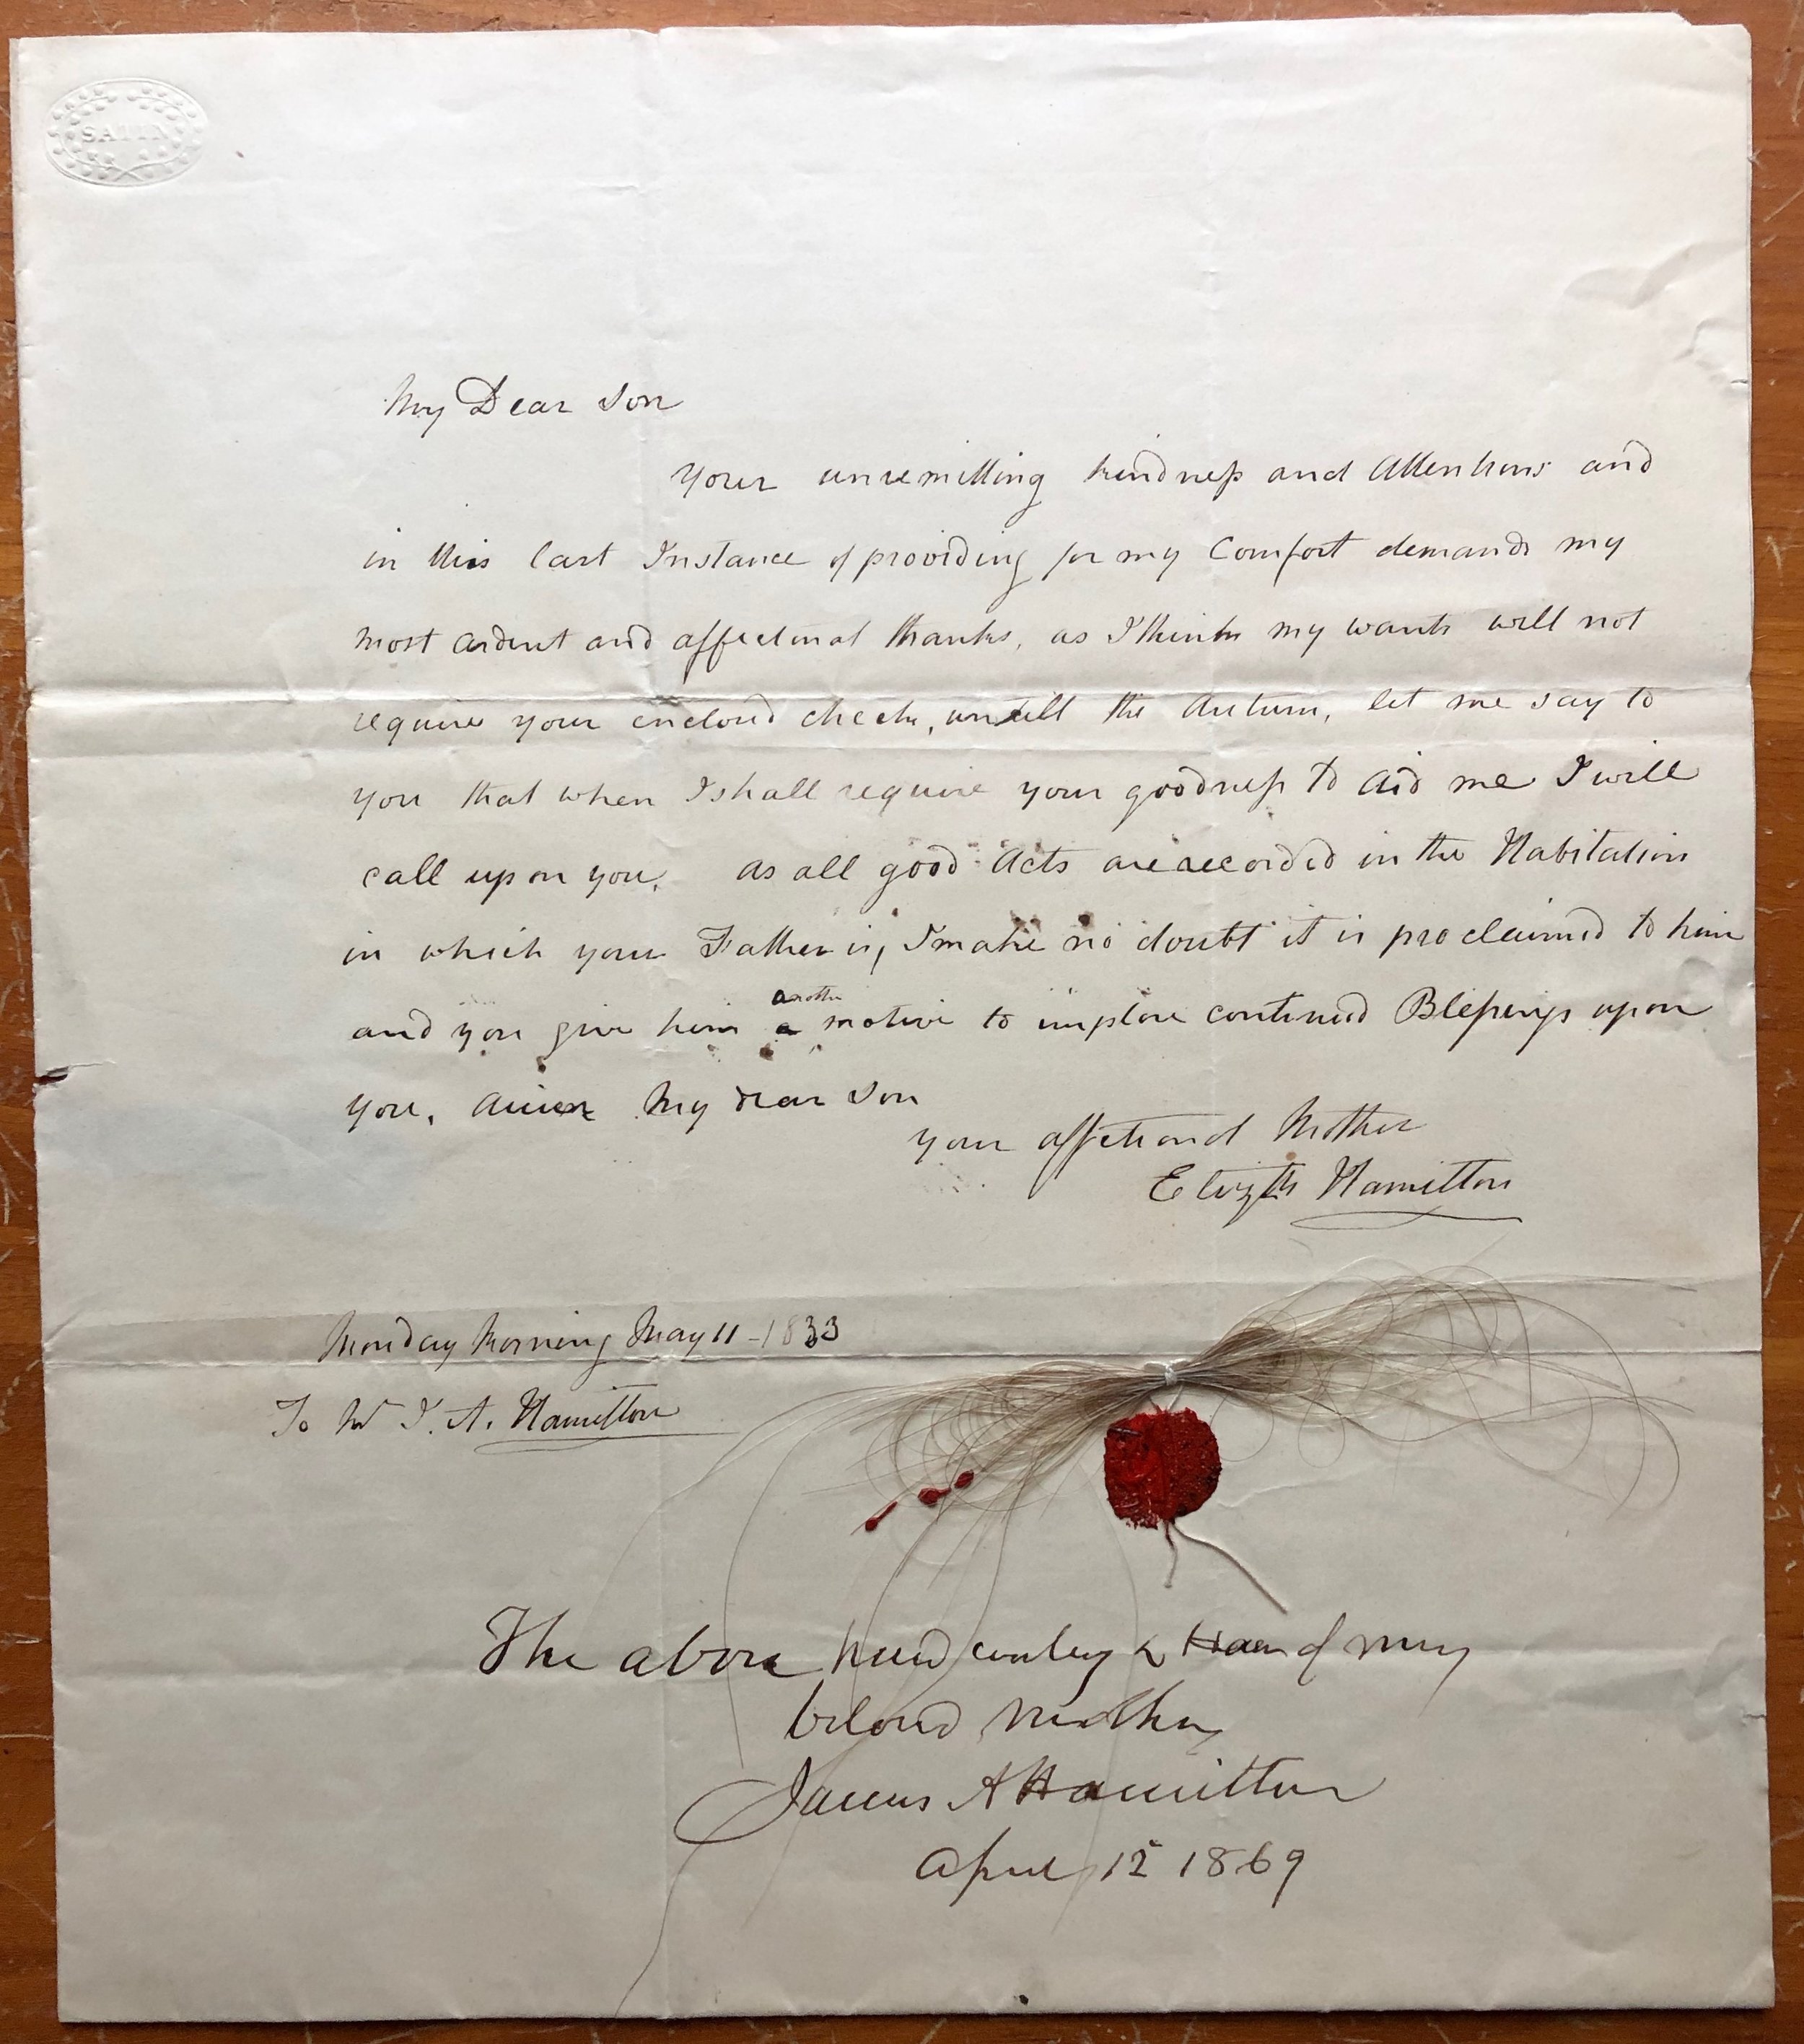 SATIN
My Dear Son
Your unremitting kindness and Attentions and
in this last Instance of providing for my Comfort demands my
most ardent and affectinat thanks, as I think my wants will not
require your enclosd check, untill the Autum, let me say to
you that when I shall require your goodness to aid me I will
call upon you. as all good Acts are recorded in the Habitation
in which your Father is, I make no doubt it is proclaimed to him
another
and you give him a motive to implore continued Blessings upon
you. My dear Son
your affetionat Mother
Elizth Hamilton
Monday Morning May 11 - 1833
To Mr J. A. Hamilton
The above hand & Hair of my
beloved Mother
James A Hamilton
April 15 1869